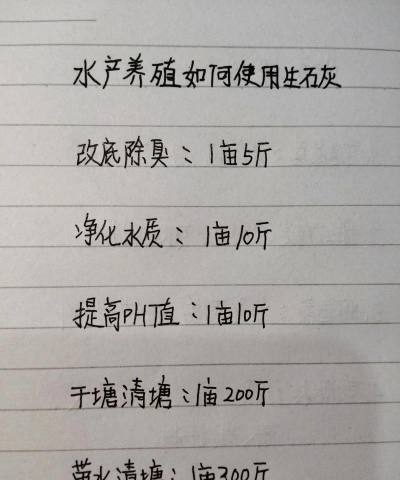 水产养殖如何使用生石灰
改底除臭：1亩5斤
净化水质：1亩10斤
提高PH值：1亩10斤
干塘清塘：1亩200斤
带水清塘：1亩300斤